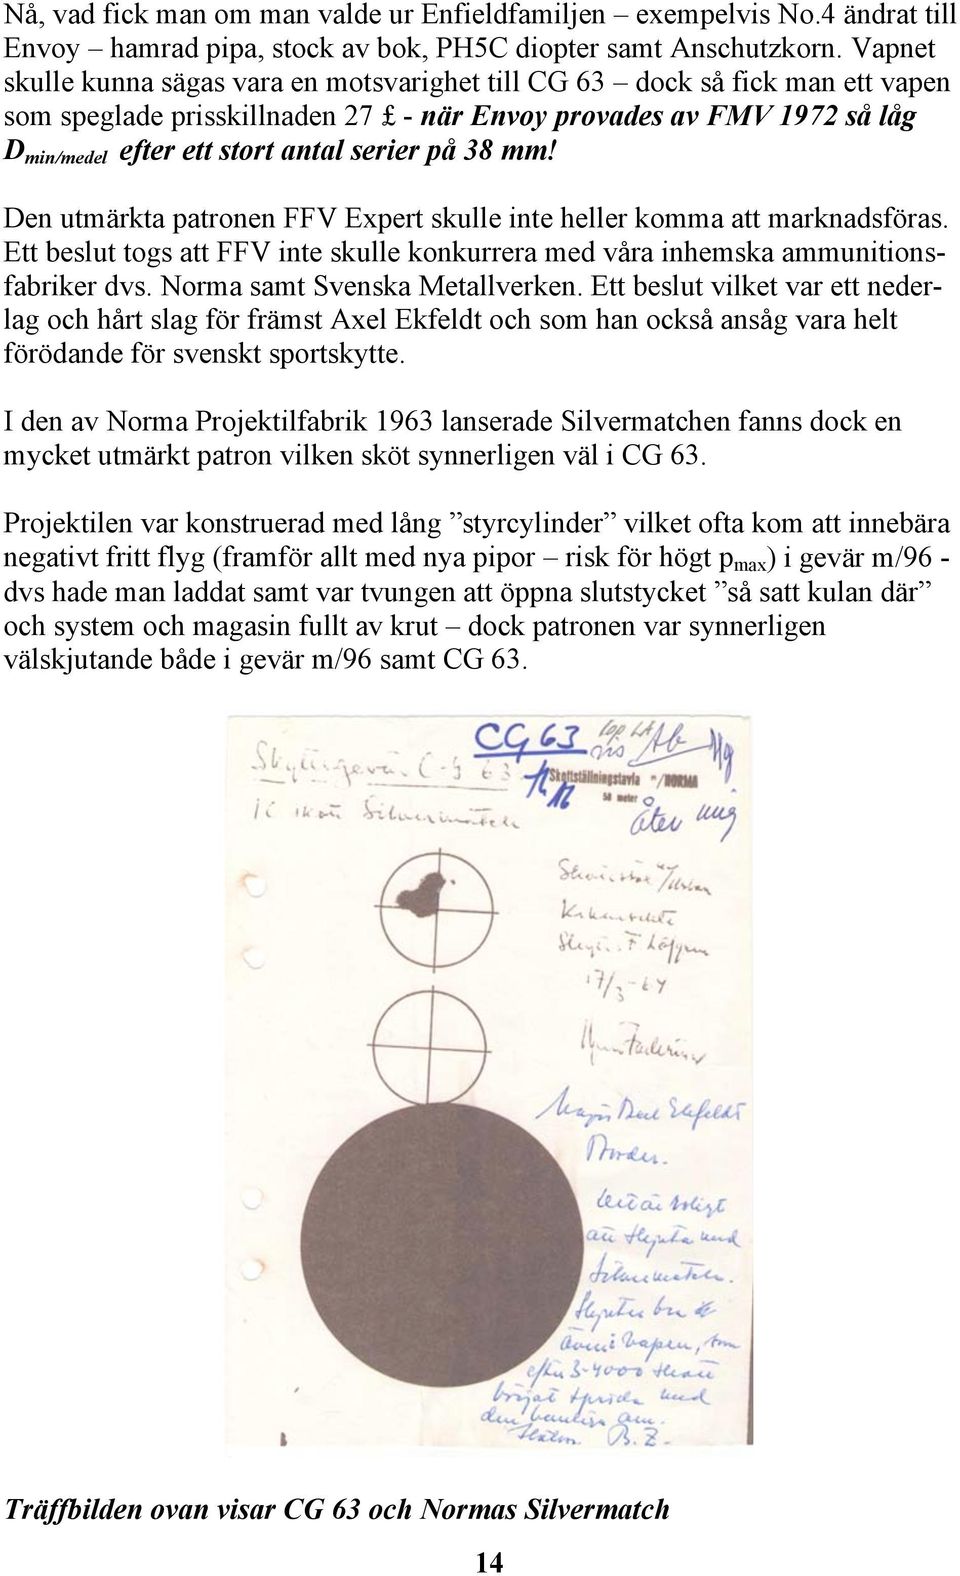 Nå, vad fick man om man valde ur Enfieldfamiljen – exempelvis No.4 ändrat till
Envoy – hamrad pipa, stock av bok, PH5C diopter samt Anschutzkorn. Vapnet
skulle kunna sägas vara en motsvarighet till CG 63 – dock så fick man ett vapen
som speglade prisskillnaden 27 £ - när Envoy provades av FMV 1972 så låg
D min/medel efter ett stort antal serier på 38 mm!
Den utmärkta patronen FFV Expert skulle inte heller komma att marknadsföras.
Ett beslut togs att FFV inte skulle konkurrera med våra inhemska ammunitions-
fabriker dvs. Norma samt Svenska Metallverken. Ett beslut vilket var ett neder-
lag och hårt slag för främst Axel Ekfeldt och som han också ansåg vara helt
förödande för svenskt sportskytte.
I den av Norma Projektilfabrik 1963 lanserade Silvermatchen fanns dock en
mycket utmärkt patron vilken sköt synnerligen väl i CG 63.
Projektilen var konstruerad med lång ”styrcylinder” vilket ofta kom att innebära
negativt fritt flyg (framför allt med nya pipor – risk för högt p max) i gevär m/96 -
dvs hade man laddat samt var tvungen att öppna slutstycket ”så satt kulan där”
och system och magasin fullt av krut – dock patronen var synnerligen
välskjutande både i gevär m/96 samt CG 63.
CG 63
Skyttegevär C-G 63
Skottställningstavla m/NORMA
50 meter
10 skott Silvermatch
Åter mig
17/3-64
Major Axel Ekfeldt
Det är roligt
att skjuta med
Silvermatch.
vapen, som
efter 3-4000 skott
börjat sprida med
den vanliga am.
B. Z.
Träffbilden ovan visar CG 63 och Normas Silvermatch
14